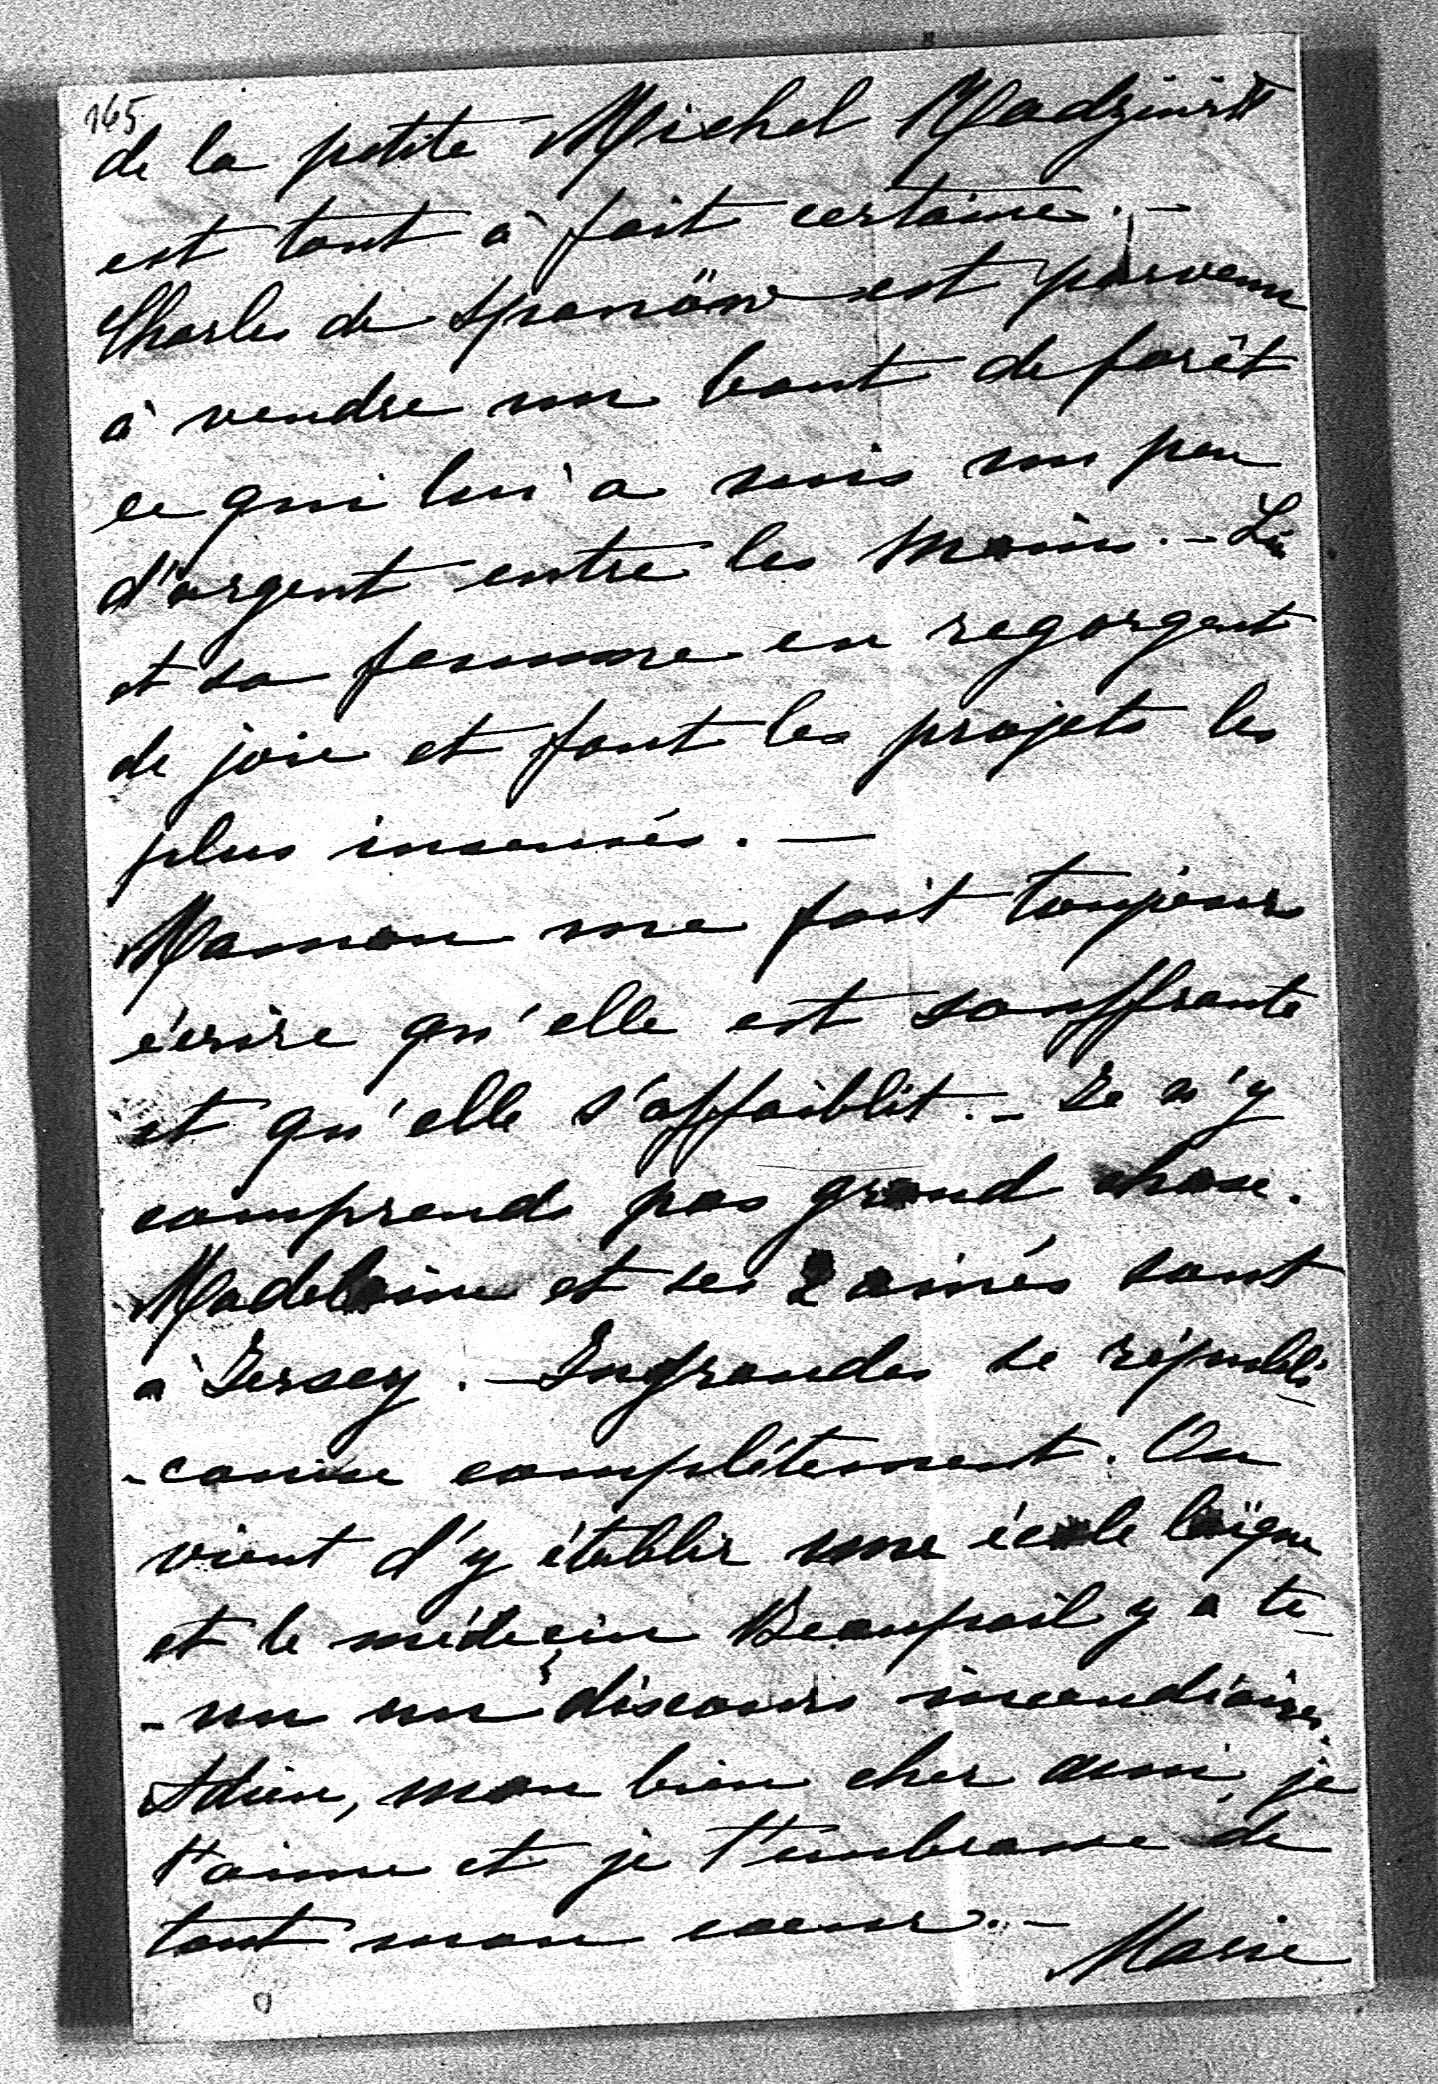 165
de la petite Michel Radziwill
est tout à fait certaine. —
Charles de Spanöw est parvenu
à vendre un bout de forêt
ce qui lui a mis un peu
d'argent entre les mains. — Lui
et sa femme en regorgent
de joie et font les projets les
plus insensés. —
Maman me fait toujours
écrire qu'elle est souffrante
et qu'elle s'affaiblit. — Je n'y
comprends pas grand chose.
Madeleine et ses 2 ainés sont
à Jersey. — Ingrandes se républi
-canise complétement. On
vient d'y établir une école laïque
et le médecin Beaupoil y a te
-nu un discours incendiaire.
Adieu, mon bien cher ami, je
t'aime et je t'embrasse de
tout mon coeur. —
Marie